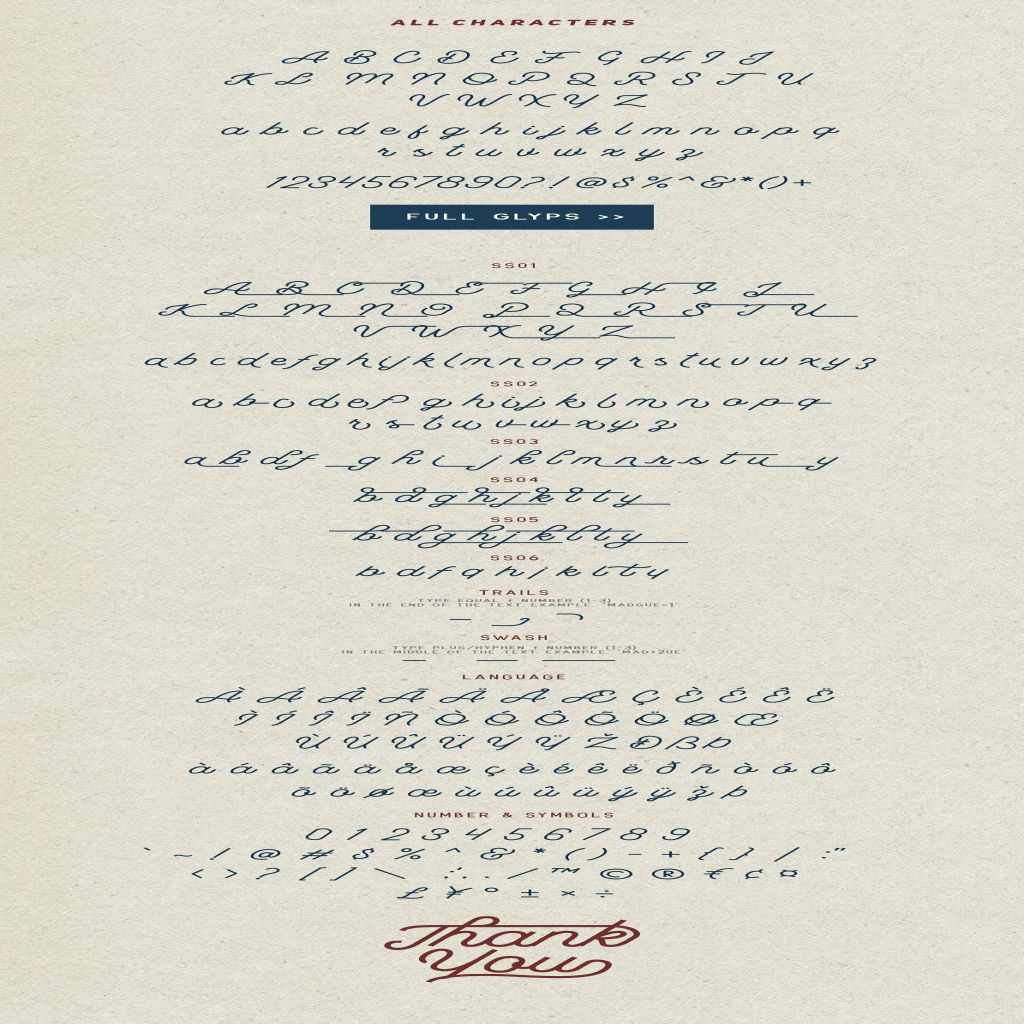 ALL CHARACTERS
A B C D E F G H I J
K L M N O P Q R S T U
V W X Y Z
a b c d e f g h i j k l m n o p q
r s t u v w x y z
1234567890?!@$%^&*()+
FULL GLYPS >>
SS01
A B C D E F G H I J
K L M N O P Q R S T U
V W X Y Z
a b c d e f g h i j k l m n o p q r s t u v w x y z
SS02
a b c d e f g h i j k l m n o p q
r s t u v w x y z
SS03
a b d f g h i j k l m n r s t u y
SS04
b d g h j k l t y
SS05
b d g h j k l t y
SS06
b d f g h j k l t y
TRAILS
TYPE EQUAL + NUMBER (1-3)
IN THE END OF THE TEXT EXAMPLE "MADGUE=1"
SWASH
TYPE PLUS/HYPHEN + NUMBER (1-3)
IN THE MIDDLE OF THE TEXT EXAMPLE "MAD+2UE"
LANGUAGE
À Á Â Ã Ä Å Æ Ç È É Ê Ë
Ì Í Î Ï Ñ Ò Ó Ô Õ Ö Ø Œ
Ù Ú Û Ü Ý Ÿ Ž Ð ß Þ
à á â ã ä å æ ç è é ê ë ð ñ ò ó ô
õ ö ø œ ù ú û ü ý ÿ ž þ
NUMBER & SYMBOLS
0 1 2 3 4 5 6 7 8 9
` ~ ! @ # $ % ^ & * ( ) - + { } | : "
< > ? [ ] \ ; , . / ™ © ® € ¢ ¤
£ ¥ ° ± × ÷
Thank
You